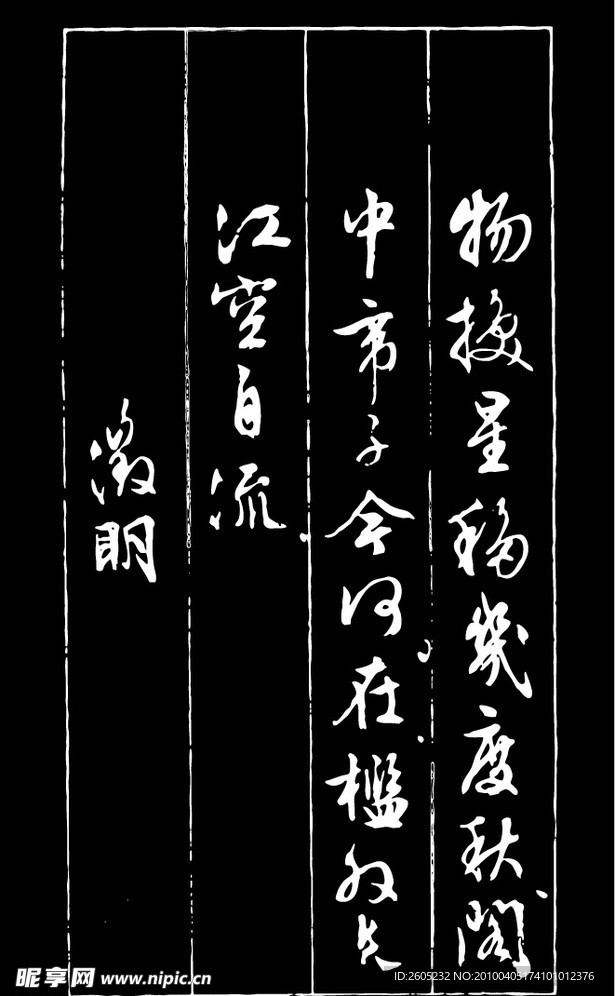 物換星移幾度秋閣
中帝子今何在檻外長
江空自流
徵明
昵享网 www.nipic.cn
ID:2605232 NO:20100405174101012376